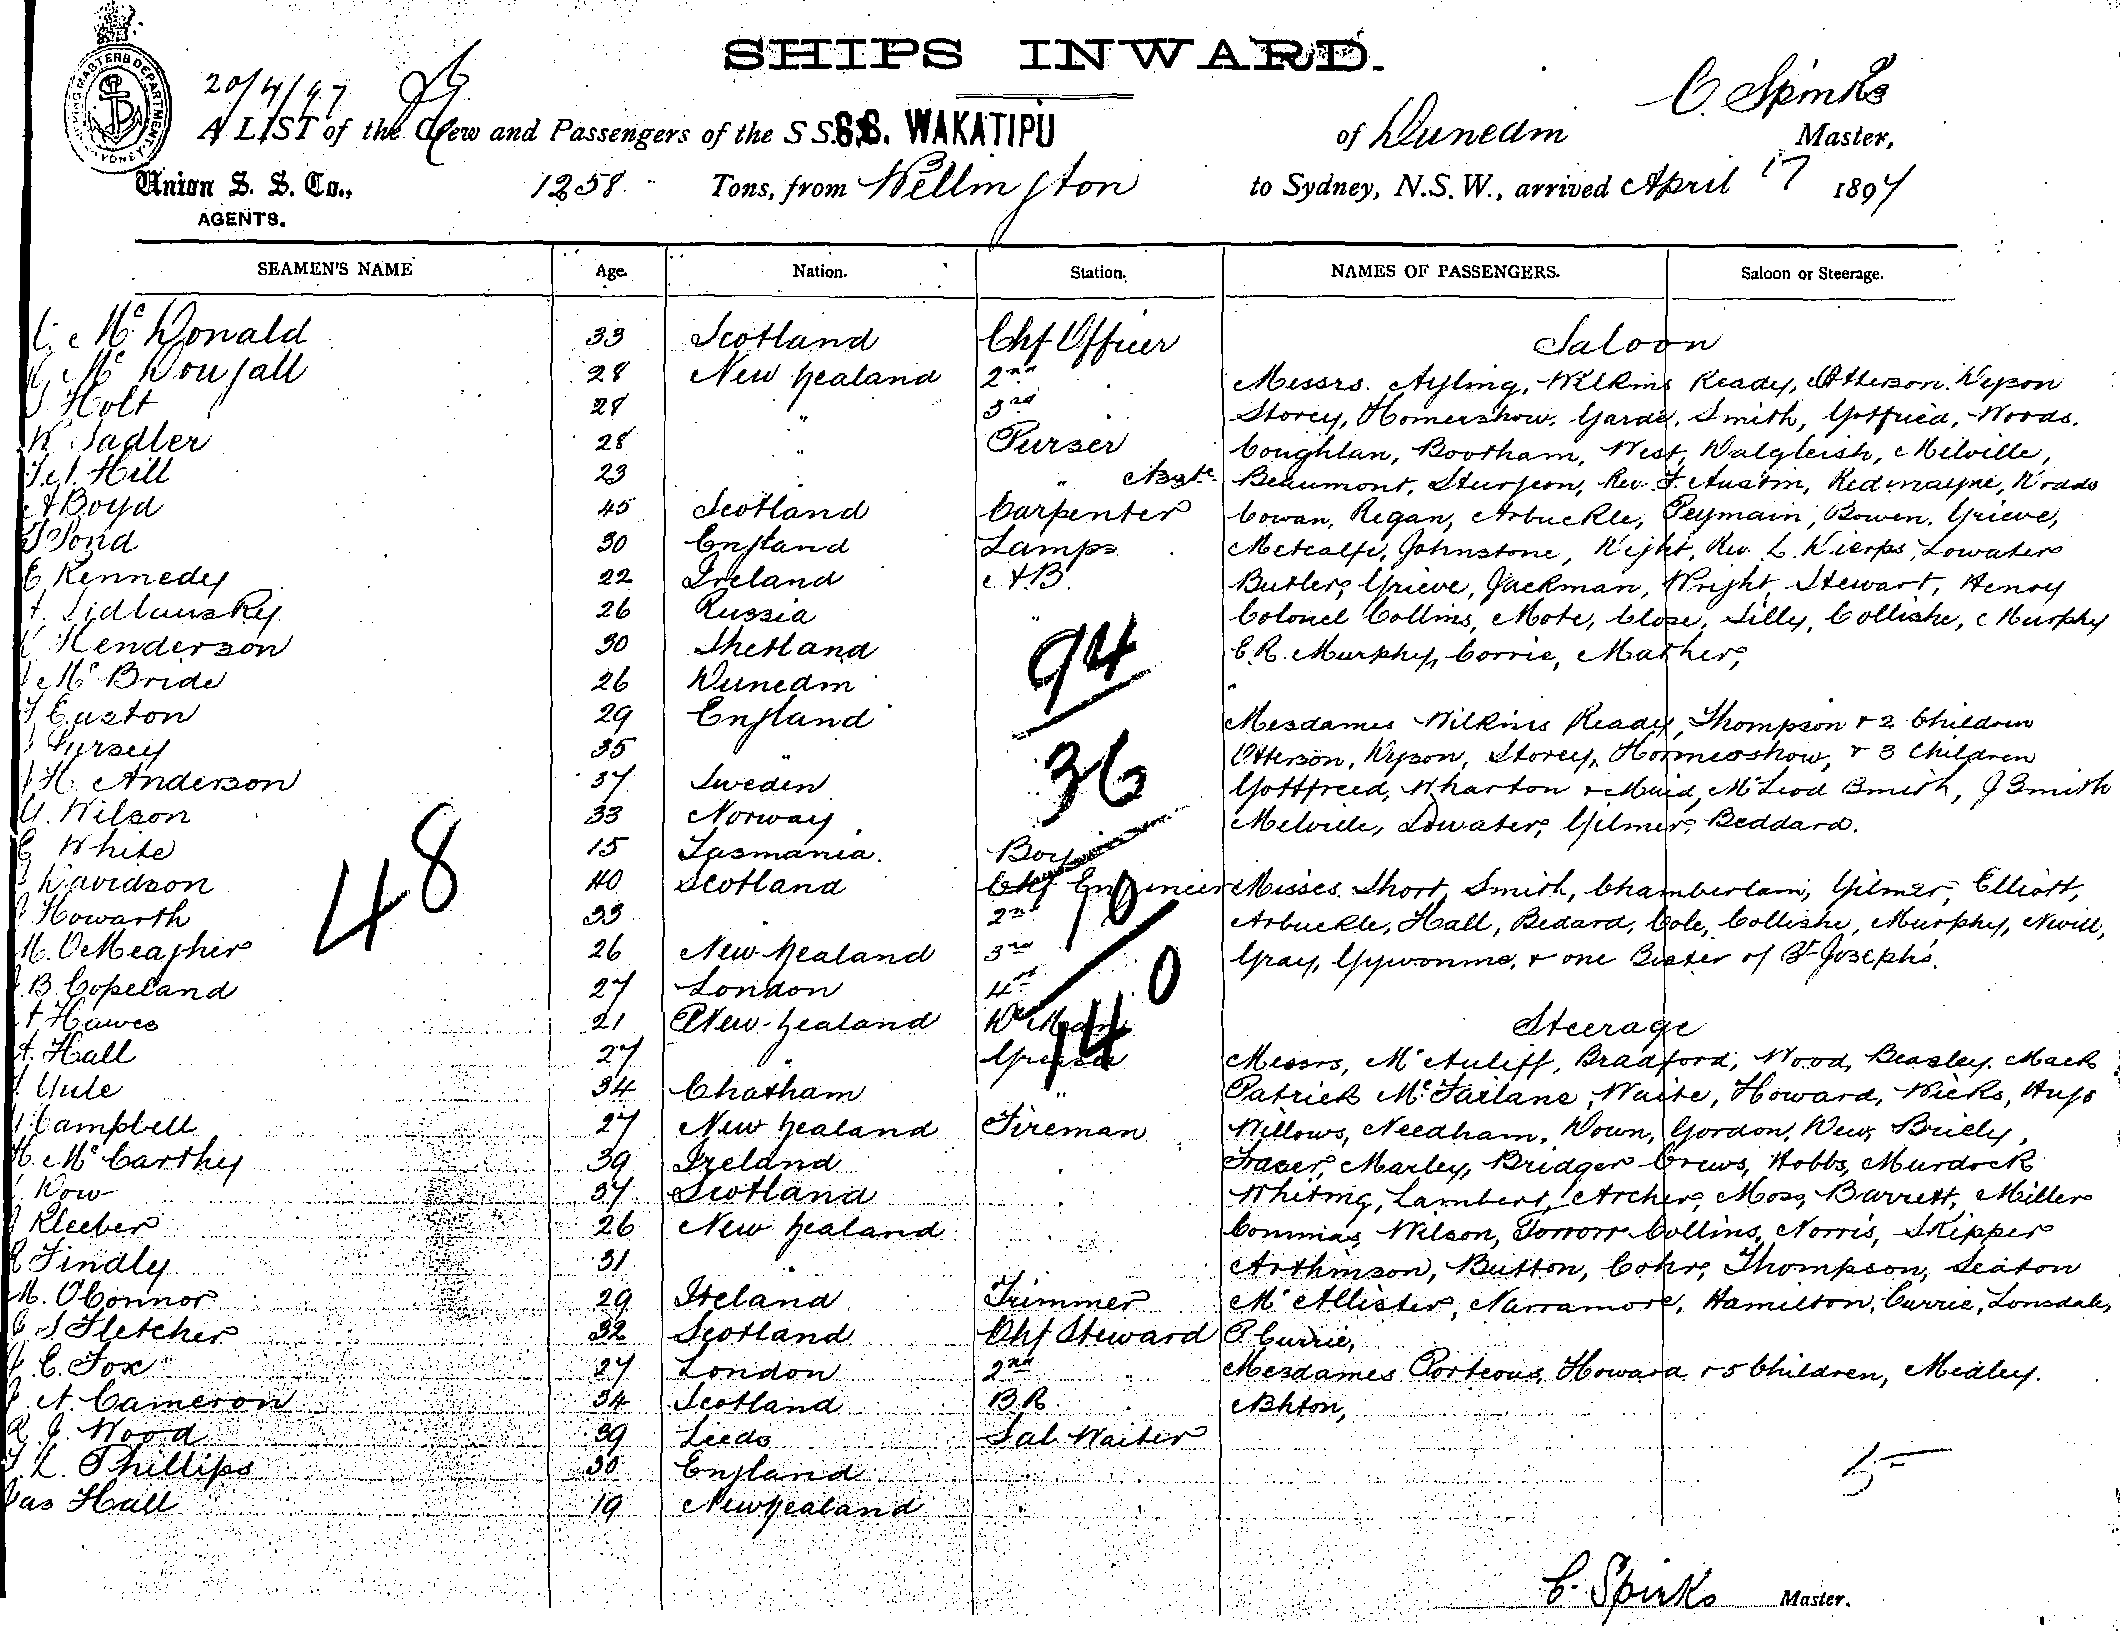 SHIPS INWARD.
20/4/97
C. Spinks
A LIST of the Crew and Passengers of the S.S. S.S. WAKATIPU of Dunedin Master,
Union S. S. Co., 1258 Tons, from Wellington to Sydney, N.S.W., arrived April 17 1897
AGENTS.
SEAMEN'S NAME Age. Nation. Station. NAMES OF PASSENGERS. Saloon or Steerage.
Mc Donald 33 Scotland Chf Officer Saloon
Mc Dougall 28 New Zealand 2nd " Messrs. Ayling, Wilkins Ready, Otterson. Dyson
Holt 28 " 3rd " Storey, Homershow. Garde, Smith, Gotfried, Woods.
W. Sadler 28 " Purser Coughlan, Bootham, West, Dalgleish, Melville,
Hill 23 " " Asst. Beaumont, Sturgeon, Rev. F. Austin, Redmayne, Woods
A Boyd 45 Scotland Carpenter Cowan, Regan, Arbuckle, Peymain, Bowen. Grieve,
Pond 30 England Lamps Metcalfe, Johnstone, Wight, Rev. L. Kierps, Lowater
Kennedy 22 Ireland A.B. Butler, Grieve, Jackman, Wright, Stewart, Henry
Sidlunsky 26 Russia " Colonel Collins, Mote, Close, Lilly, Collishe, Murphy
Henderson 30 Shetland E. R. Murphy, Corrie, Mather,
Mc Bride 26 Dunedin
Easton 29 England Mesdames Wilkins Ready, Thompson + 2 Children
Pursey 35 " Otterson, Dyson, Storey, Homershow, + 3 Children
H. Anderson 37 Sweden Gottfreed, Wharton + Maid, McLeod Smith, J Smith
Wilson 33 Norway Melville, Lowater, Gilmer, Beddard.
White 15 Tasmania. Boy
Davidson 40 Scotland Chf Engineer Misses. Short, Smith, Chamberlain, Gilmer, Elliott,
Howarth 33 " 2nd Arbuckle, Hall, Bedard, Cole, Collishe, Murphy, Nevill,
M. OMeagher 26 New Zealand 3rd Gray, + one Sister of St Josephs.
B. Copeland 27 London 4th
Hawes 21 New Zealand Steerage
Hall 27 " Greaser Messrs, McAuliff, Bradford, Wood, Beasley. Mack
Yule 34 Chatham " Patrick McFarlane, Waite, Howard, Wicks, Hugo
Campbell 27 New Zealand Fireman Willows, Needham, Down, Gordon, Dew, Briely,
Mc Carthy 39 Ireland " Fraser, Marley, Bridger Crews, Hobbs, Murdock
Dow 37 Scotland " Whiting, Lambert, Archer, Moss, Barrett, Miller
Kleeber 26 New Zealand " Wilson, Collins, Norris, Skipper
Findly 31 " Arthinson, Button, Cohr, Thompson, Seaton
M. OConnor 29 Ireland Trimmer McAllister, Narramore, Hamilton, Currie, Lonsdale,
S Fletcher 32 Scotland Chf Steward P. Currie,
C. Fox 27 London 2nd " Mesdames Porteous, Howard + 5 Children, Medley.
A. Cameron 34 Scotland B.R. Ashton,
R. J. Wood 39 Leeds Sal Waiter
L. Phillips 30 England "
Jas Hall 19 New Zealand "
48
94
36
10
140
C. Spinks Master.